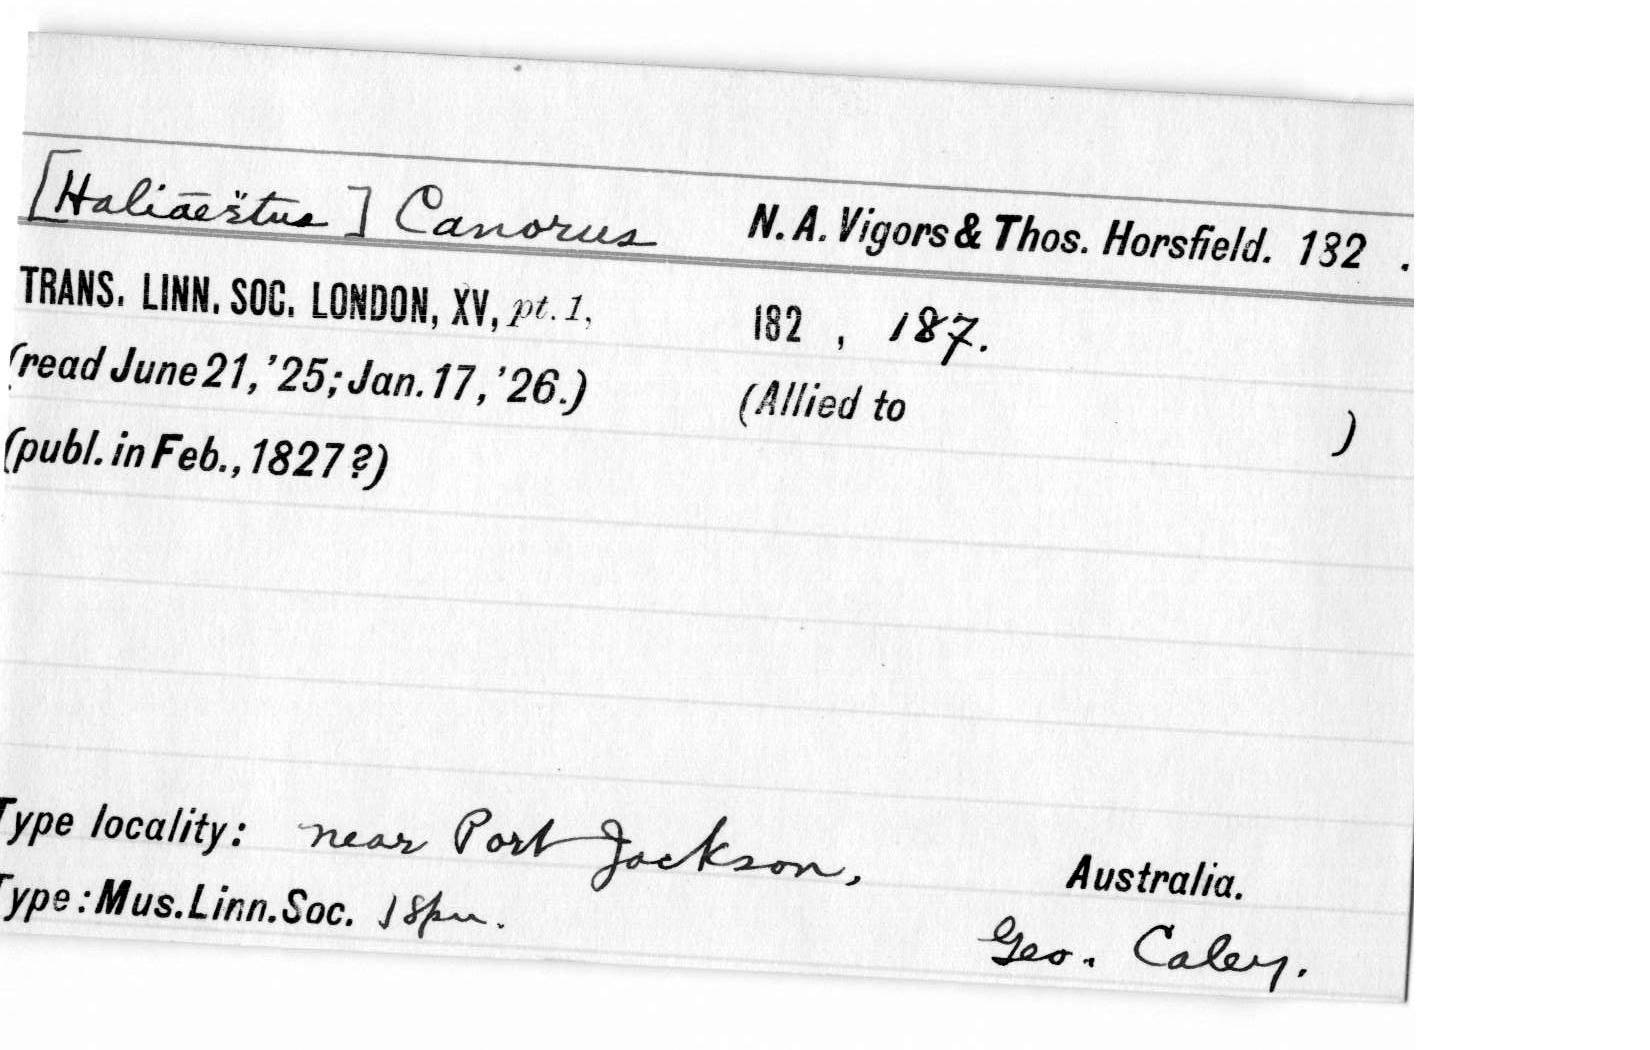 [Haliāëtus] Canorus N. A. Vigors & Thos. Horsfield. 182 .
TRANS. LINN. SOC. LONDON, XV, pt. 1, 182 , 187.
(read June 21, '25; Jan. 17, '26.) (Allied to )
(publ. in Feb., 1827?)
Type locality: near Port Jackson, Australia.
Type: Mus. Linn. Soc. Geo. Caley.